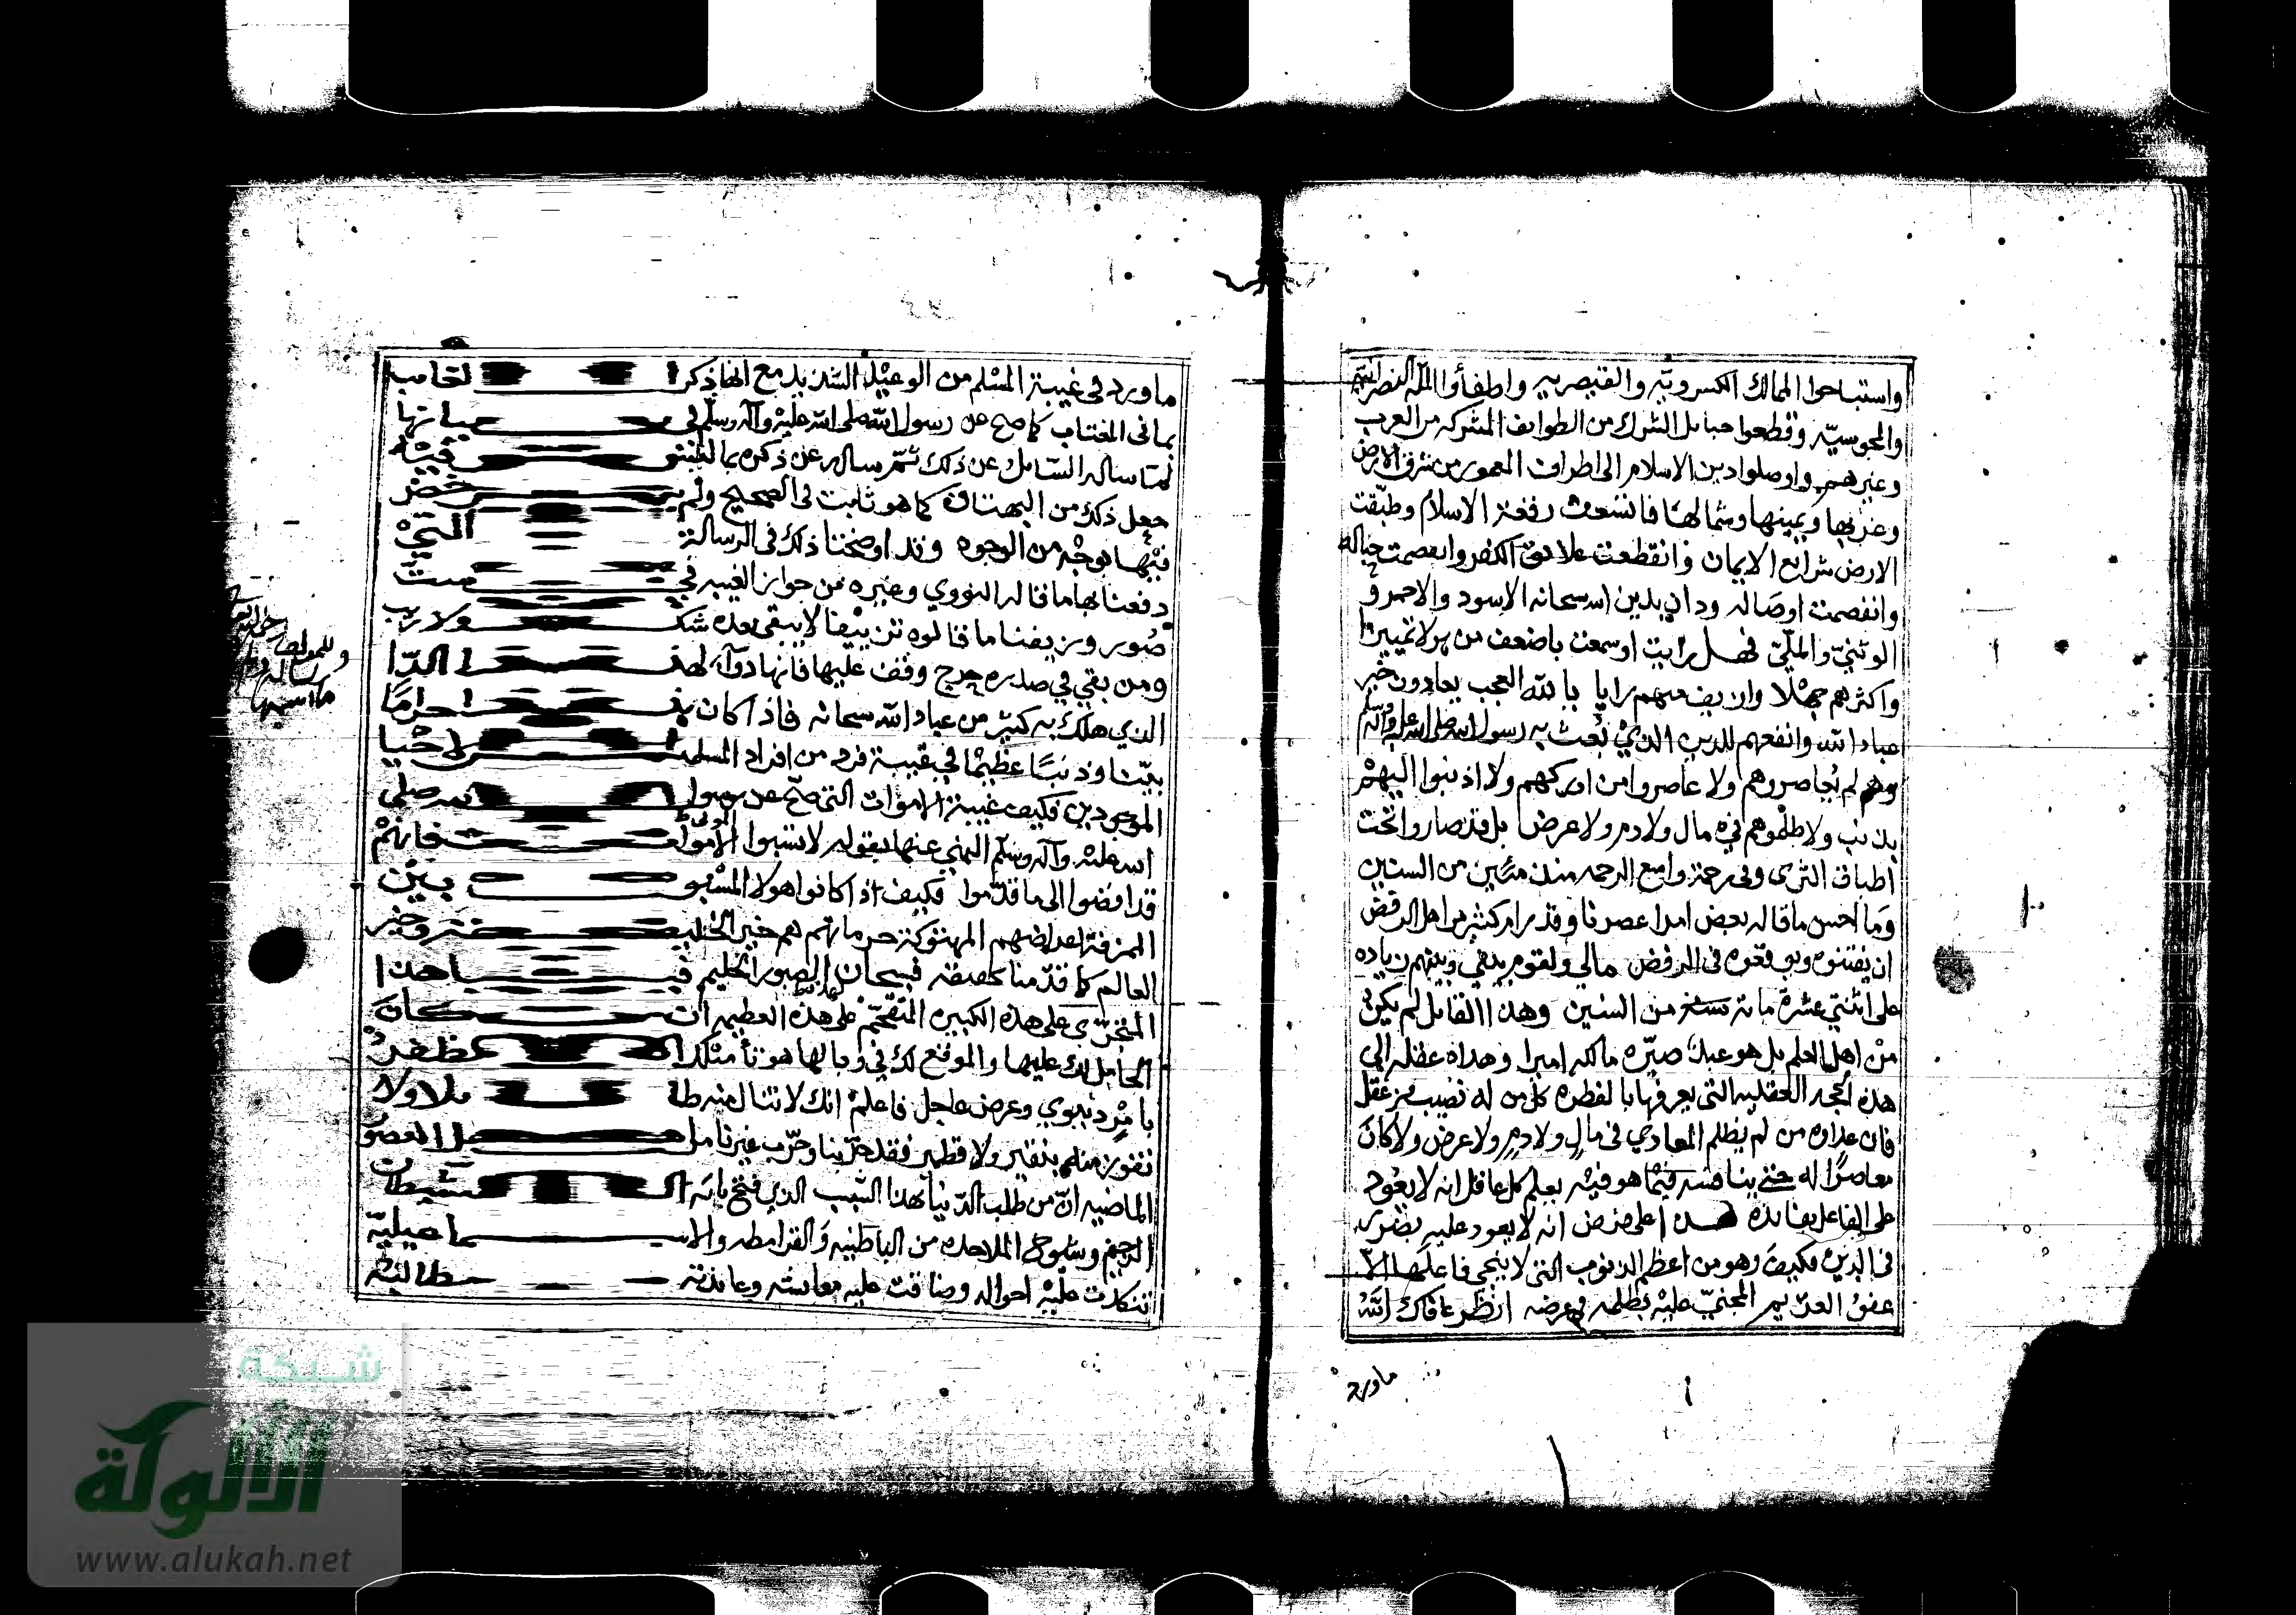 واستباحوا الممالك الكسرويّه والقيصريه واطفأوا الملّه النصرانيّه
والمجوسيّه وقطعوا حبايل الشرك من الطوايف المشركه من العرب
وغيرهم واوصلوا دين الاسلام الى اطراف المعمور من شرق الارض
وغربها ويمينها وشمالها فاتسعت رقعة الاسلام وطبّقت
الارض شرايع الايمان وانقطعت علايق الكفر وانفصمت حباله
وانفصمت اوصاله ودان بدين الله سبحانه الاسود والاحمر و
الوثنيّ والملّيّ فهل رايت او سمعت باضعف من هولا تمييزا
واكثرهم جهلا وازيف منهم رايا يا لله العجب يعادون خير
عباد الله وانفعهم للدين الذي بُعث به رسول الله صلى الله عليه واله وسلم
وهم لم يُعاصروهم ولا عاصروا من ادركهم ولا اذنبوا اليهم
بذنب ولا ظلموهم في مال ولا دم ولا عرض بل قد صاروا تحت
اطباق الثرى وفى رحمة واسع الرحمه منذ مئين من السنين
وما احسن ما قاله بعض امرا عصرنا وقد رام كثير من اهل الرفض
ان يفتنوه ويوقعوه فى الرفض مالي ولقوم بيني وبينهم زياده
على اثنتي عشرة ماية سنة من السنين وهذا القايل لم يكن
من اهل العلم بل هو عبد صيّره مالكه اميرا وهداه عقله الى
هذه الحجه العقليه التى يعرفها بالفطره كل من له نصيب من عقل
فان عداوه من لم يظلم المعادي فى مال ولا دم ولا عرض ولا كان
معاصرًا له حتى ينافسه فيما هو فيه يعلم كل عاقل انه لا يعود
على الفاعل بفايده هذا على فرض انه لا يعود عليه بضرر
فى الدين فكيف وهو من اعظم الذنوب التى لا ينجي فاعلها الا
عفو العريم المجنيّ عليه بظلمه في عرضه انظر عافاك الله
ماورد
ما ورد فى غيبة المسلم من الوعيد الشديد مع انها ذكر الغايب
بما فى المغتاب كما صح عن رسول الله صلى الله عليه وآله وسلم فى بيانها
لما ساله السايل عن ذلك ثم ساله عن ذكره بما ليس فيه
جعل ذلك من البهتان كما هو ثابت فى الصحيح ولم يرخص
فيها بوجه من الوجوه وقد اوضحنا ذلك فى الرسالة التي
دفعنا بها ما قاله النووي وغيره من جواز الغيبه في ست
صُور وزيفنا ما قالوه تزييفا لا يبقى بعده شك ولا ريب
ومن بقي في صدره حرج وقف عليها فانها دوآء لهذا الدا
الذي هلك به كثير من عباد الله سبحانه فاذا كان هذا حرامًا
بحتا وذنبًا عظيمًا في غيبة فرد من افراد المسلمين الاحيا
الموجودين فكيف غيبة الاموات التى صحّ عن رسول الله صلى
الله عليه وآله وسلم النهي عنها بقوله لا تسبوا الاموات فانهم
قد افضوا الى ما قدّموا فكيف اذا كانوا هولا المسبوبين
الممزقة اعراضهم المهتوكة حرماتهم هم خير الخليقة وخير
العالم كما قدّمنا تحقيقه فسبحان الصبور الحليم فيا هذا
المتجرّي على هذه الكبيره المتقحّم على هذه العظيمه ان كان
الحامل لك عليها والموقع لك في وبالها هو تأميلك الظفر
بامر دنيوي وعرض عاجل فاعلم انك لا تنال منه طايلا ولا
تفوز منه بنقير ولا قطمير فقد جرّبنا وجرّب غيرنا من اهل العصور
الماضيه انّ من طلب الدّنيا بهذا السبب الذي فتح بابه الشيطان
الرجيم وشيوخ الملاحده من الباطنيه والقرامطه والاسماعيليّة
تنكدت عليه احواله وضاقت عليه معايشه وعاندته مطالبه
وللمولف رحمه الله
رسالة